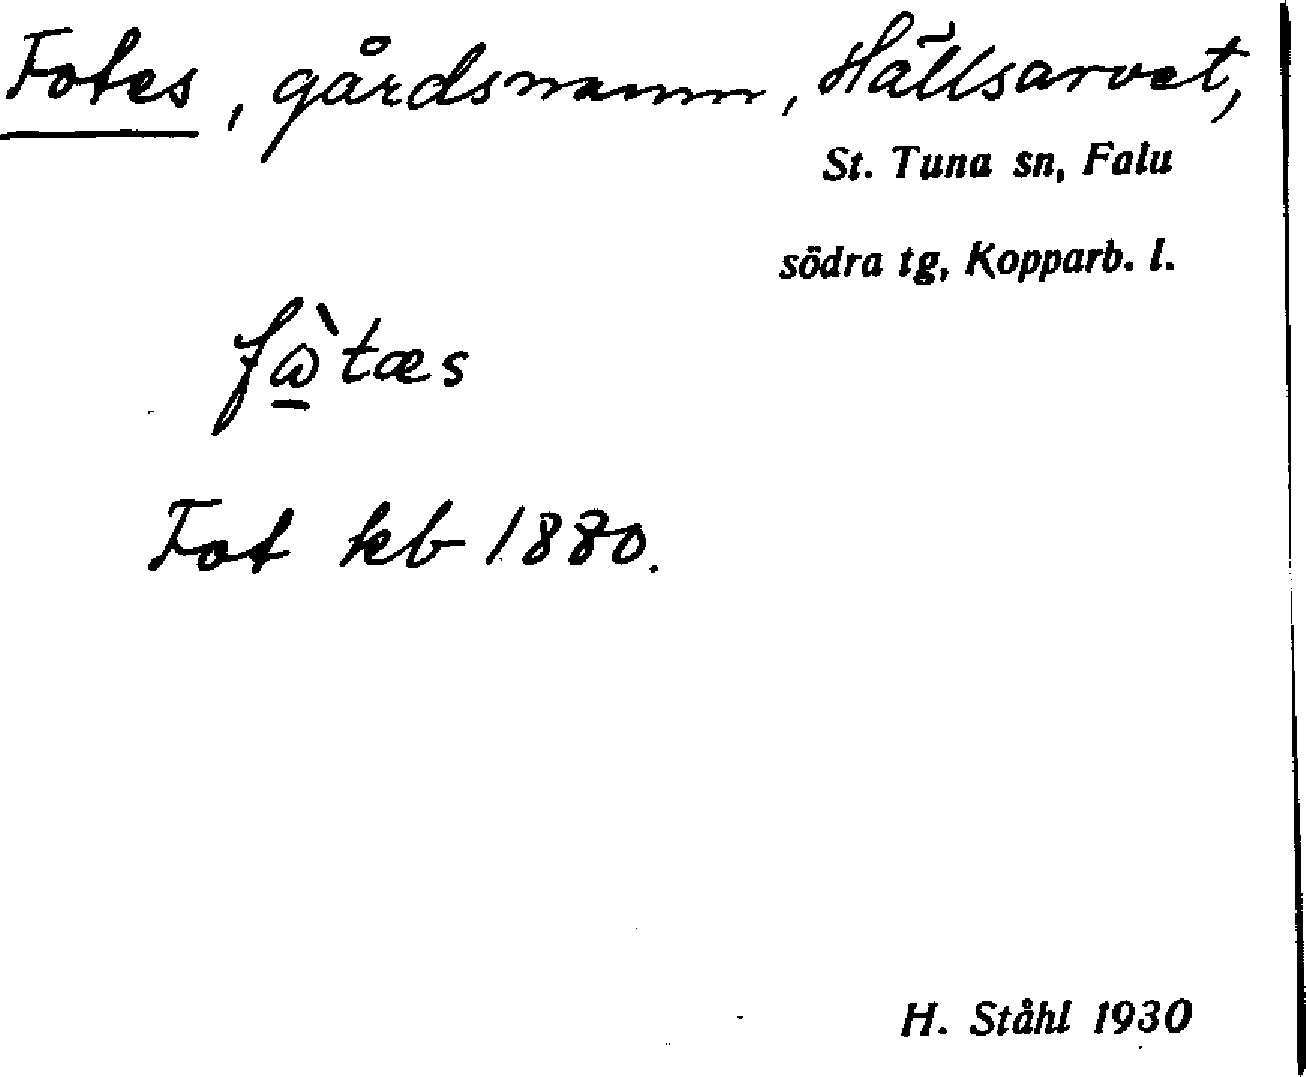 Fotes, gårdsnamn, Hällsarvet,
St. Tuna sn, Falu
södra tg, Kopparb. l.
fὼ̲tæs
Fot kb 1880.
H. Ståhl 1930